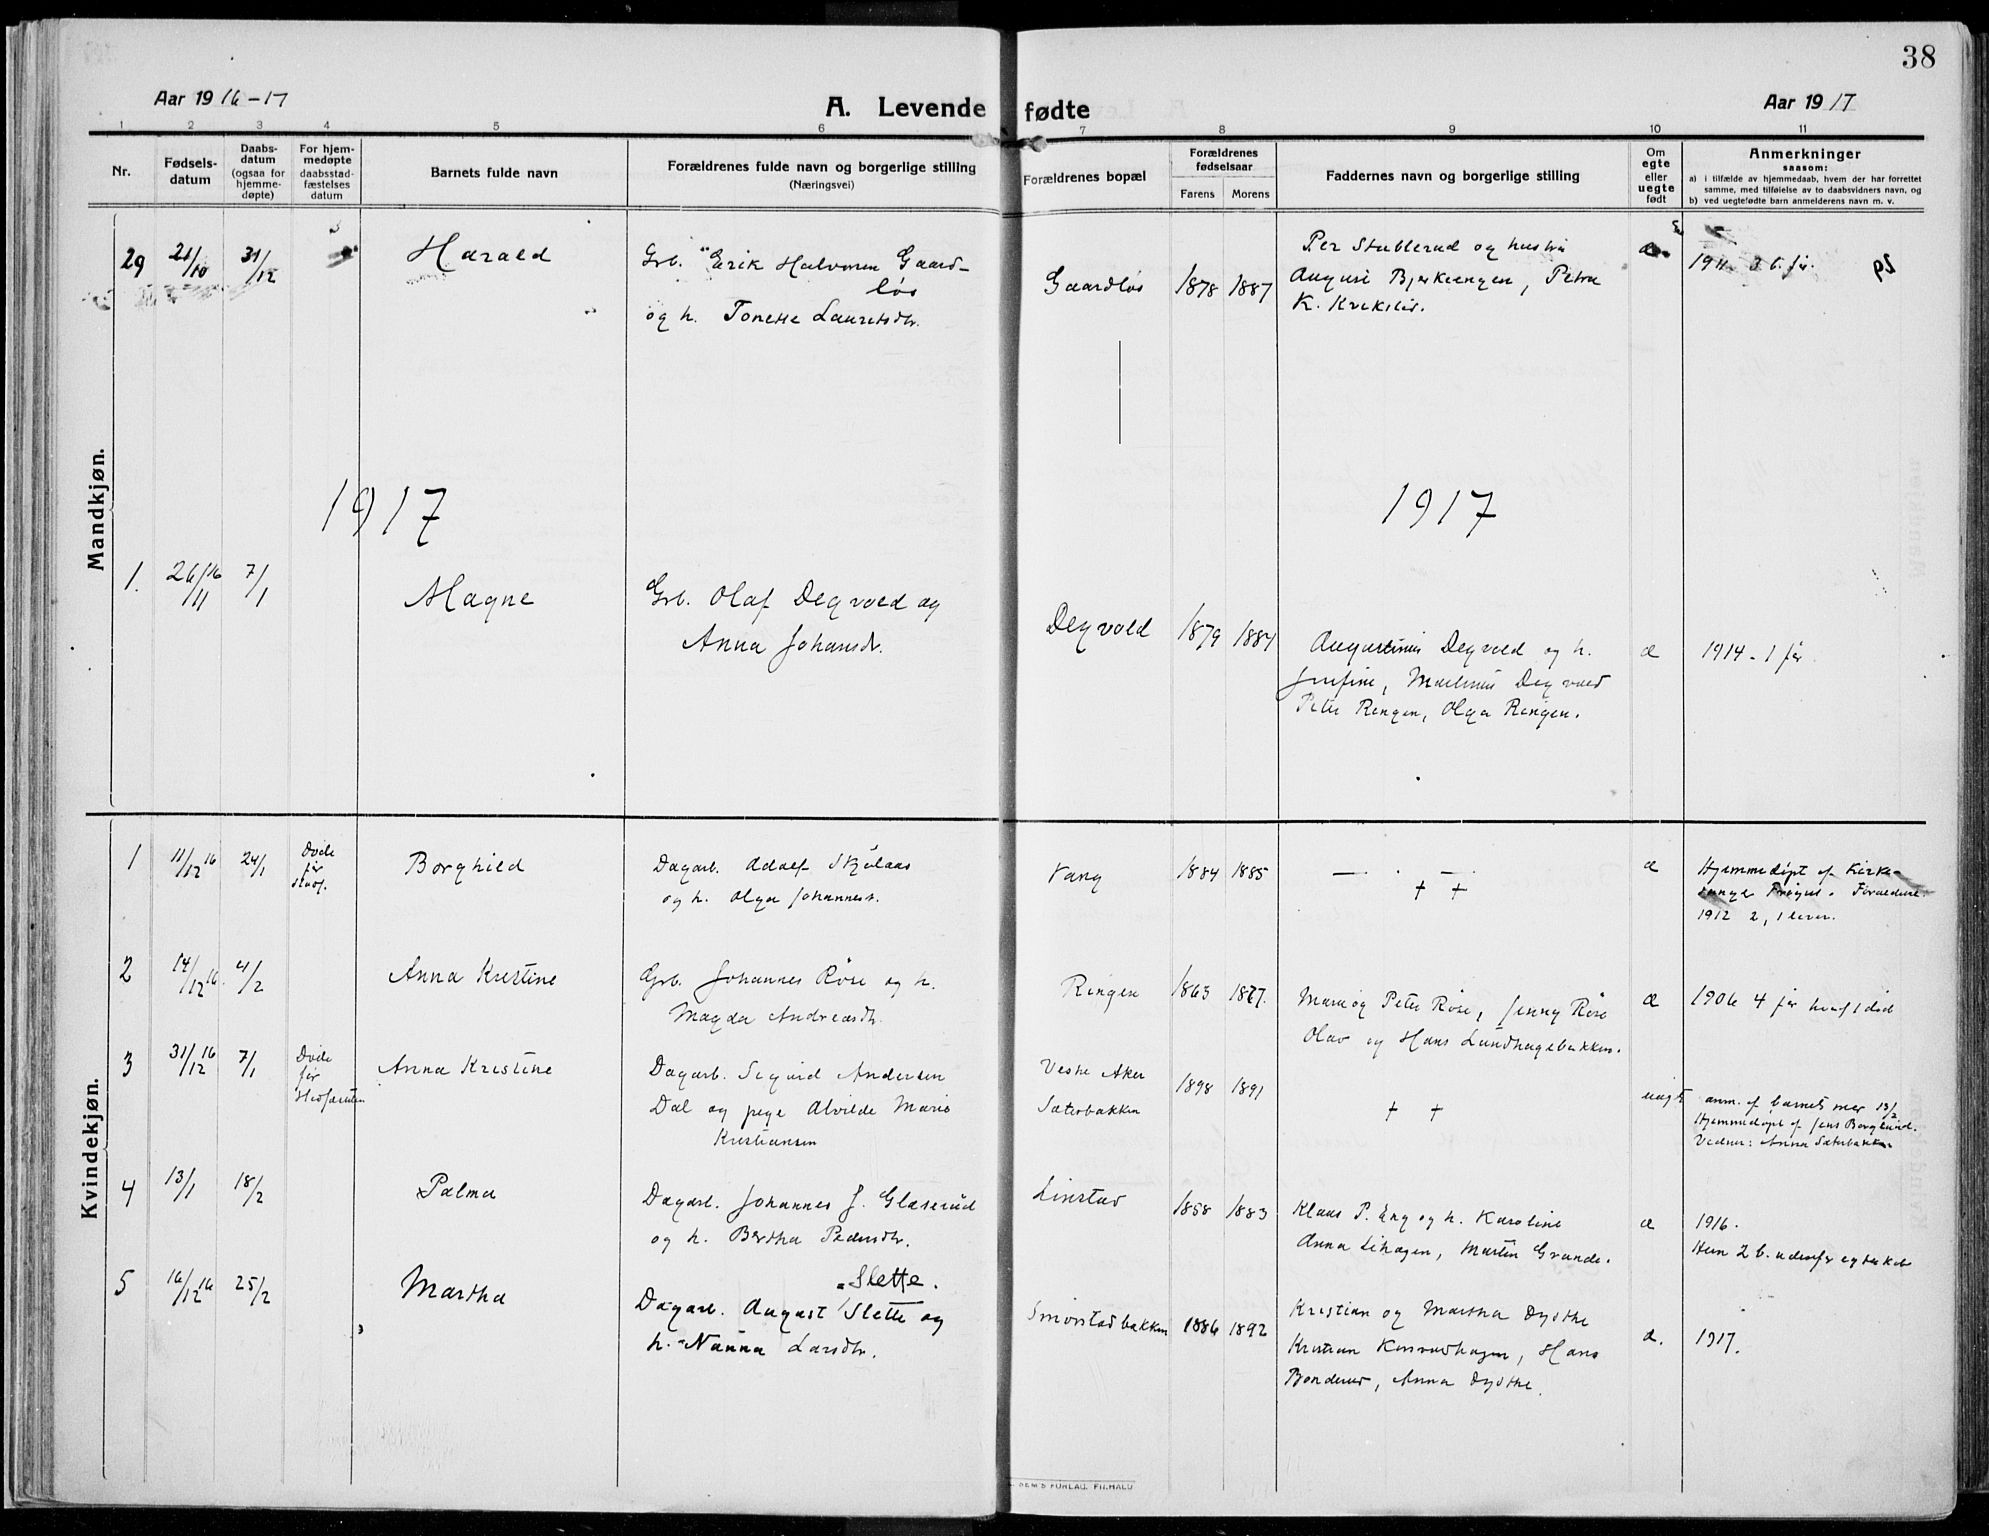 38
Aar 1916-17
A. Levende fødte
Aar 1917
1 2 3 4 5 6 7 8 9 10 11
Nr.
Fødsels-
datum
Daabs-
datum
(ogsaa for
hjemme-
døpte)
For hjem-
medøpte
daabsstad-
fæstelses
datum
Barnets fulde navn
Forældrenes fulde navn og borgerlige stilling
(Næringsvei)
Forældrenes bopæl
Forældrenes
fødselsaar
Farens Morens
Faddernes navn og borgerlige stilling
Om
egte
eller
uegte
født
Anmerkninger
saasom:
a) i tilfælde av hjemmedaab, hvem der har forrettet
samme, med tilføielse av to daabsvidners navn, og
b) ved uegtefødte barn anmelderens navn m. v.
Mandkjøn.
29 21/10 31/12 Harald
Grb. Erik Halvorsen Gaard-
løs
og h. Tonette Lauretsdtr.
Gaardløs 1878 1887
Per Stubberud og hustru
August Bjerkeengen, Petra
K.
1911 3 6. før.
29
1917
1917
1. 26/11 16 7/1 Magne
Grb. Olaf Degvold og
Anna Johansdtr.
Degvold 1879 1884
Augustinus Degvold og h.
Josefine, Martinus Degvold
Peter Ringen, Olga Ringen.
æ
1914 - 1 før
Kvindekjøn.
1 11/12 16 24/1 Døde
før
stadf.
Borghild
Dagarb. Adolf Skjølaas
og h. Olga Johannesd.
Vang 1884 1885
— . —.
+ +
æ
Hjemmedøpt af Kirke-
sanger. Forældrene
1912 2, 1 lever.
2 14/12 16. 4/2 Anna Kristine
Grb. Johannes Røse og h.
Magda Andreasdtr.
Ringen 1863 1877.
Marie og Peter Røse, Jenny Røse
Olav og Hans Lundhagebakken.
æ
1906 4 før hvaf 1 død
3 31/12 16 7/1 Døde
før
Stadfæstelsen
Anna Kristine
Dagarb. Sigurd Andersen
Dal og pige Alvilde Marie
Kristiansen
Vestre Aker
Sæterbakken
1898 1891
+ +
uegte
anm. af barnets mor 13/2
Hjemmedøpt af Jens Berglund.
Vidner: Anna Sæterbakken
4 13/1 18/2 Palma
Dagarb. Johannes J. Glæserud
og h. Bertha Pedersdtr.
Linstad 1858 1883
Klaas P. Eng og h. Karoline
Anna Lihagen, Martin Grande.
æ
1916.
Hun 2 b. udenfor egteskab
5 16/12 16 25/2 Martha
Slette.
Dagarb. August Slette og
h. Nanna Larsdtr.
Smørstadbakken 1886 1892
Kristian og Martha Dysthe
Kristian Konsvadhagen, Hans
Bonderud, Anna Dysthe.
æ.
1917.